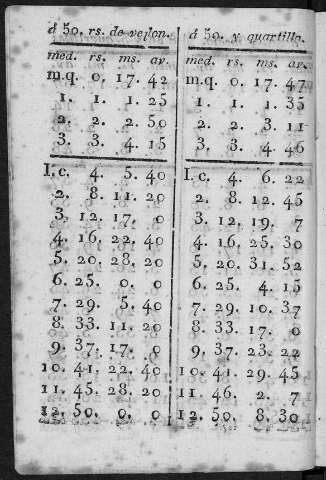 á 50. rs. de vellon.
med. rs. ms. av.
m.q. 0. 17. 42
1. 1. 1. 25
2. 2. 2. 50
3. 3. 4. 15
I. c. 4. 5. 40
2. 8. 11. 20
3. 12. 17. 0
4. 16. 22. 40
5. 20. 28. 20
6. 25. 0. 0
7. 29. 5. 40
8. 33. 11. 20
9. 37. 17. 0
10. 41. 22. 40
11. 45. 28. 20
12. 50. 0. 0
á 50. y quartillo.
med. rs. ms. av.
m.q. 0. 17. 47
1. 1. 1. 35
2. 2. 3. 11
3. 3. 4. 46
I. c. 4. 6. 22
2. 8. 12. 45
3. 12. 19. 7
4. 16. 25. 30
5. 20. 31. 52
6. 25. 4. 15
7. 29. 10. 37
8. 33. 17. 0
9. 37. 23. 22
10. 41. 29. 45
11. 46. 2. 7
12. 50. 8. 30